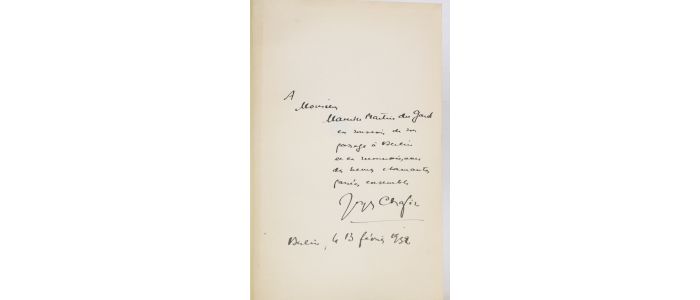 A
Monsieur
Maurice Martin du Gard
en souvenir de son
passage à Berlin
et en reconnaissance
des heures charmantes
passées ensemble
Berlin, le 13 février 1932